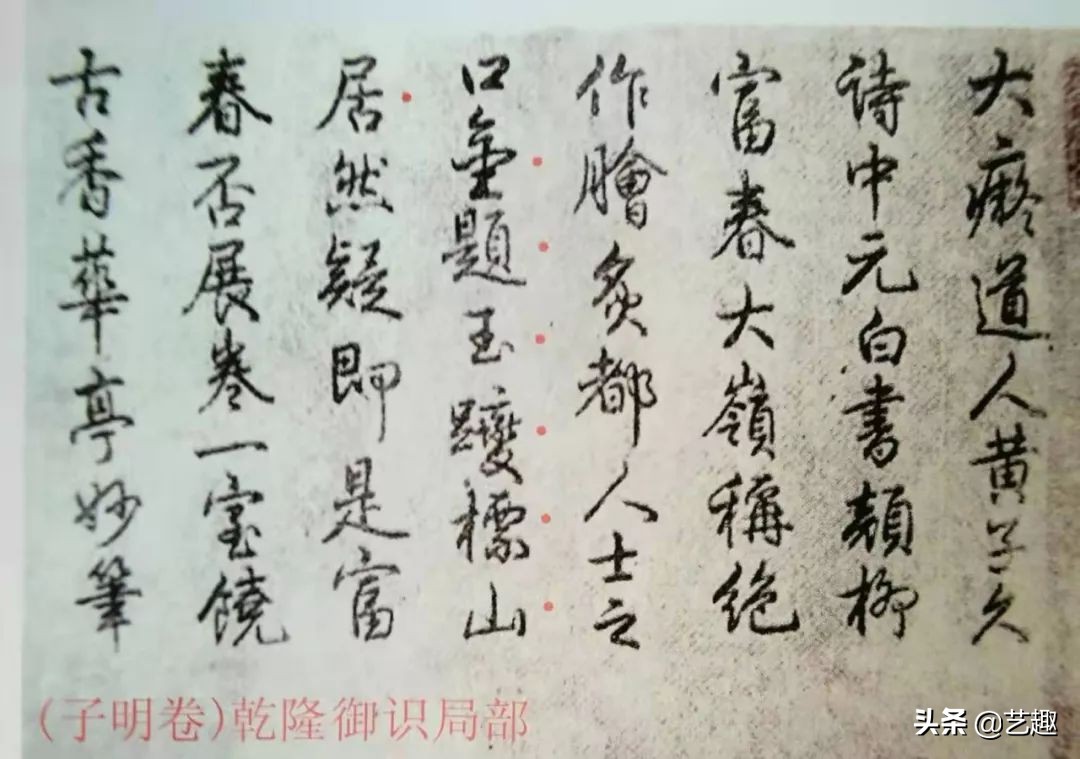 大癡道人黄子久
诗中元白書顛柳
富春大嶺稱絶
作膾炙都人士之
口金題玉躞標山
居然疑即是富
春否展卷一室饒
古香華亭妙筆
(子明卷)乾隆御识局部
头条 @艺趣